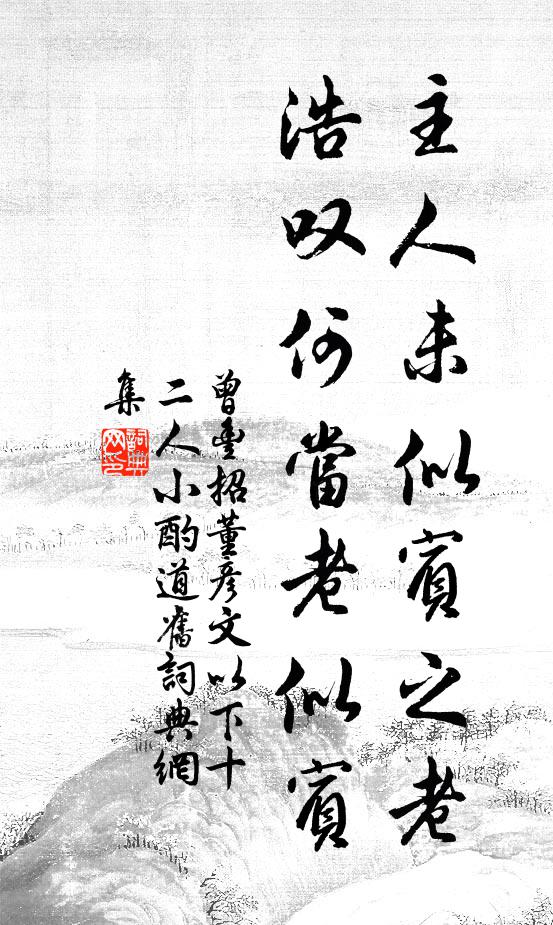 主人未似賓之老
浩叹何當老似賓
曾豐招董彦文以下十
二人小酌道舊詞典網
集
詞典网印